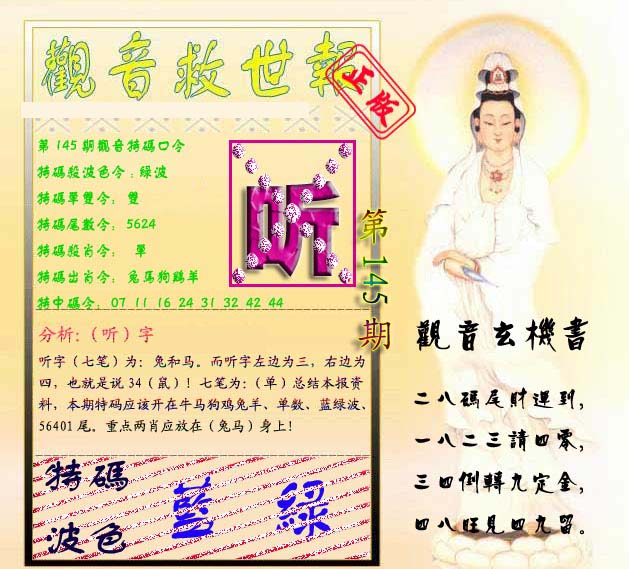 觀音救世報
正版
第145期觀音特碼口令
特碼殺波色令:綠波
特碼單雙令: 雙
特碼尾數令: 5624
特碼殺肖令: 單
特碼出肖令: 兔馬狗鷄羊
特中碼令: 07 11 16 24 31 32 42 44
听
第145期
分析:(听)字
听字（七笔）为：兔和马。而听字左边为三，右边为
四，也就是说34（鼠）！七笔为:（单）总结本报资
料，本期特码应该开在牛马狗鸡兔羊、单数、蓝绿波、
56401尾。重点两肖应放在（兔马）身上！
特碼
波色
藍 綠
觀音玄機書
二八碼尾財運到，
一八二三請四零，
三四倒轉九定金，
四八旺見四九留。